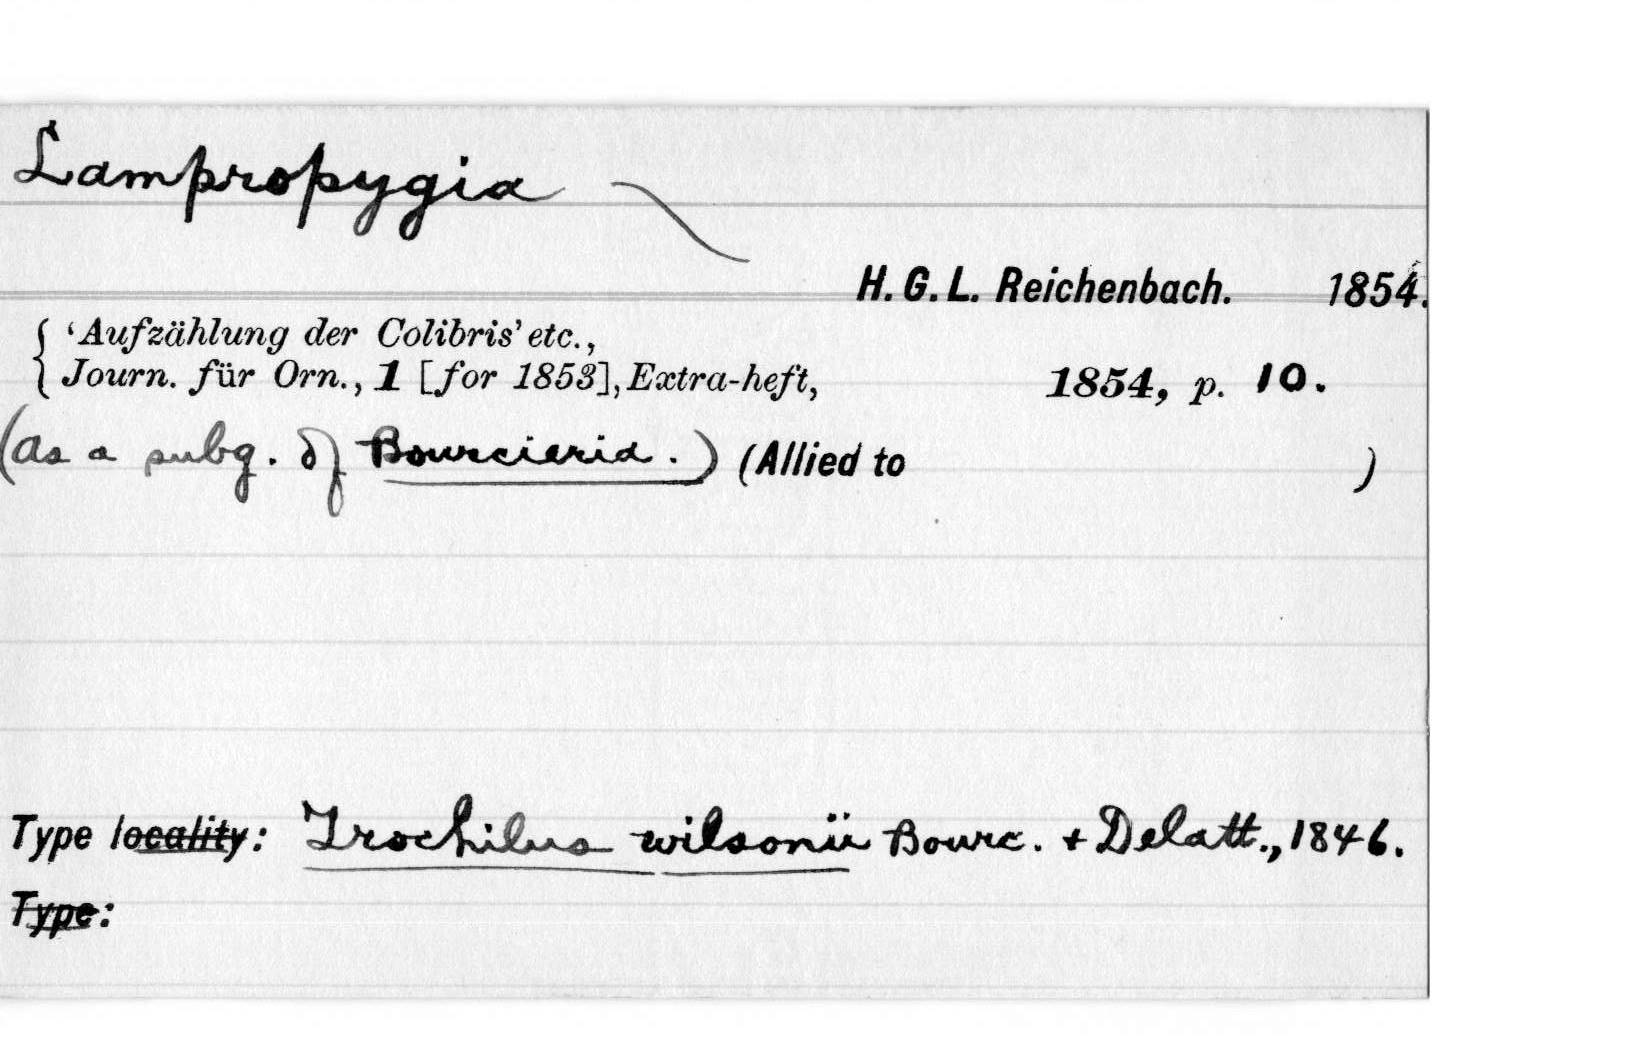 Lampropygia
H. G. L. Reichenbach. 1854.
‘Aufzählung der Colibris’ etc.,
Journ. für Orn., 1 [for 1853], Extra-heft, 1854, p. 10.
(as a subg. of Bourcieria.) (Allied to )
Type locality: Trochilus wilsonii Bourc. + Delatt., 1846.
Type: